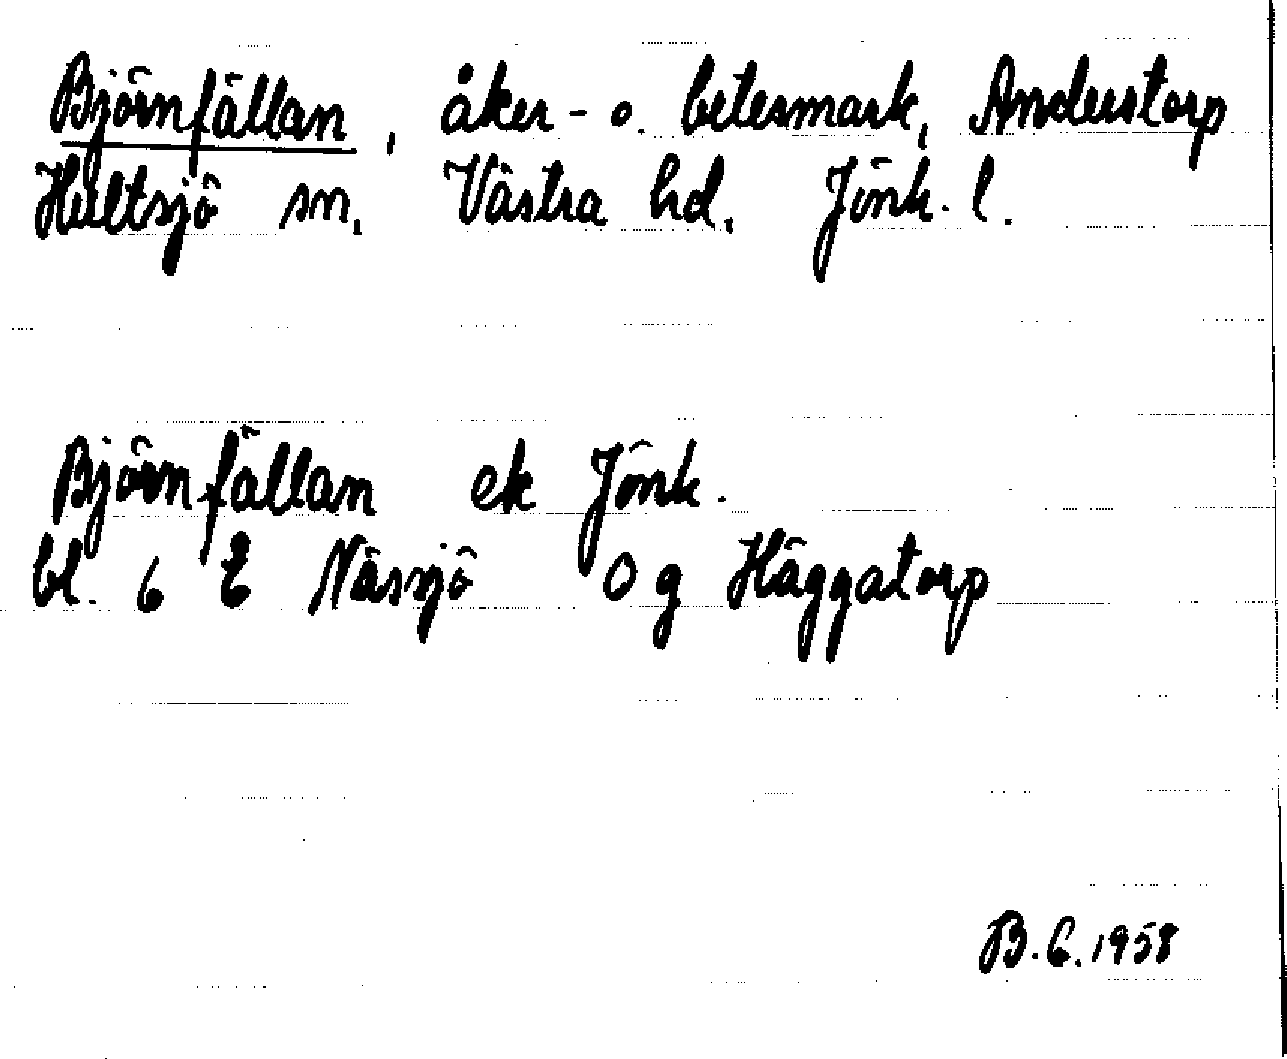 Björnfällan, åker- o. betesmark, Anderstorp
Hultsjö sn. Västra hd. Jönk. l.
Björnfällan ek Jönk.
bl. 6 E Nässjö 0 g Häggatorp
B.G. 1958